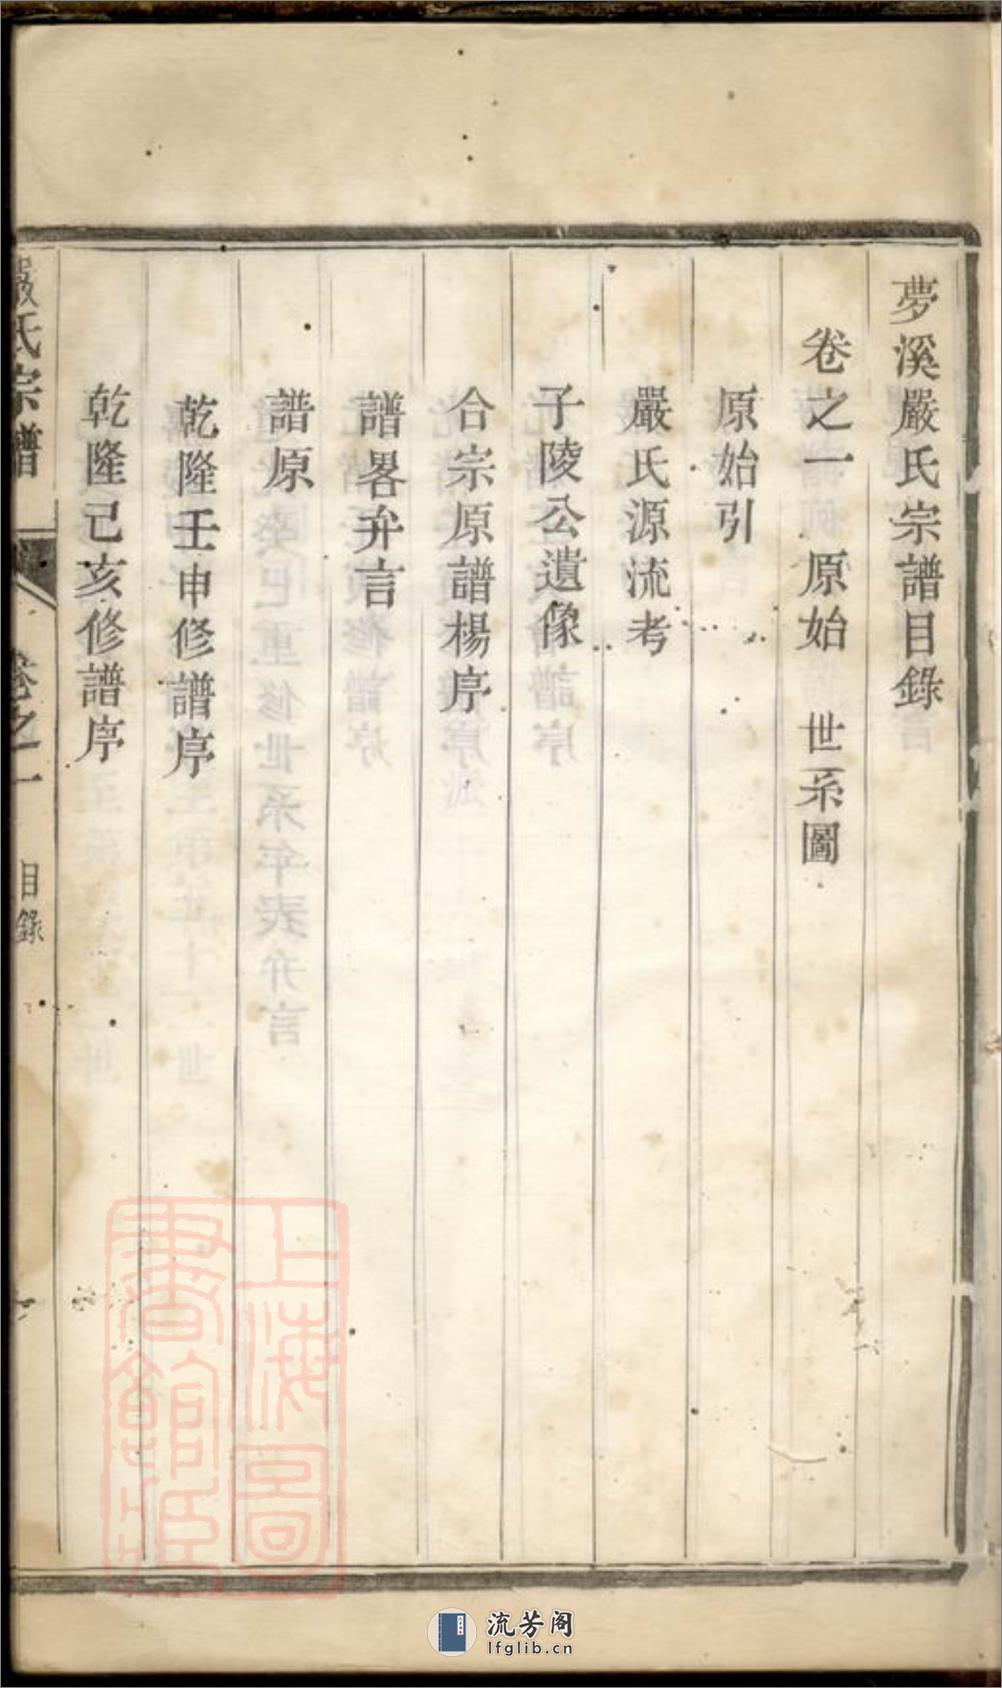 夢溪嚴氏宗譜目錄
卷之一 原始 世系圖
原始引
嚴氏源流考
子陵公遺像
合宗原譜楊序
譜畧弁言
譜原
乾隆壬申修譜序
乾隆己亥修譜序
嚴氏宗譜 卷之一 目錄 一
上海圖書館藏
流芳阁
lfglib.cn